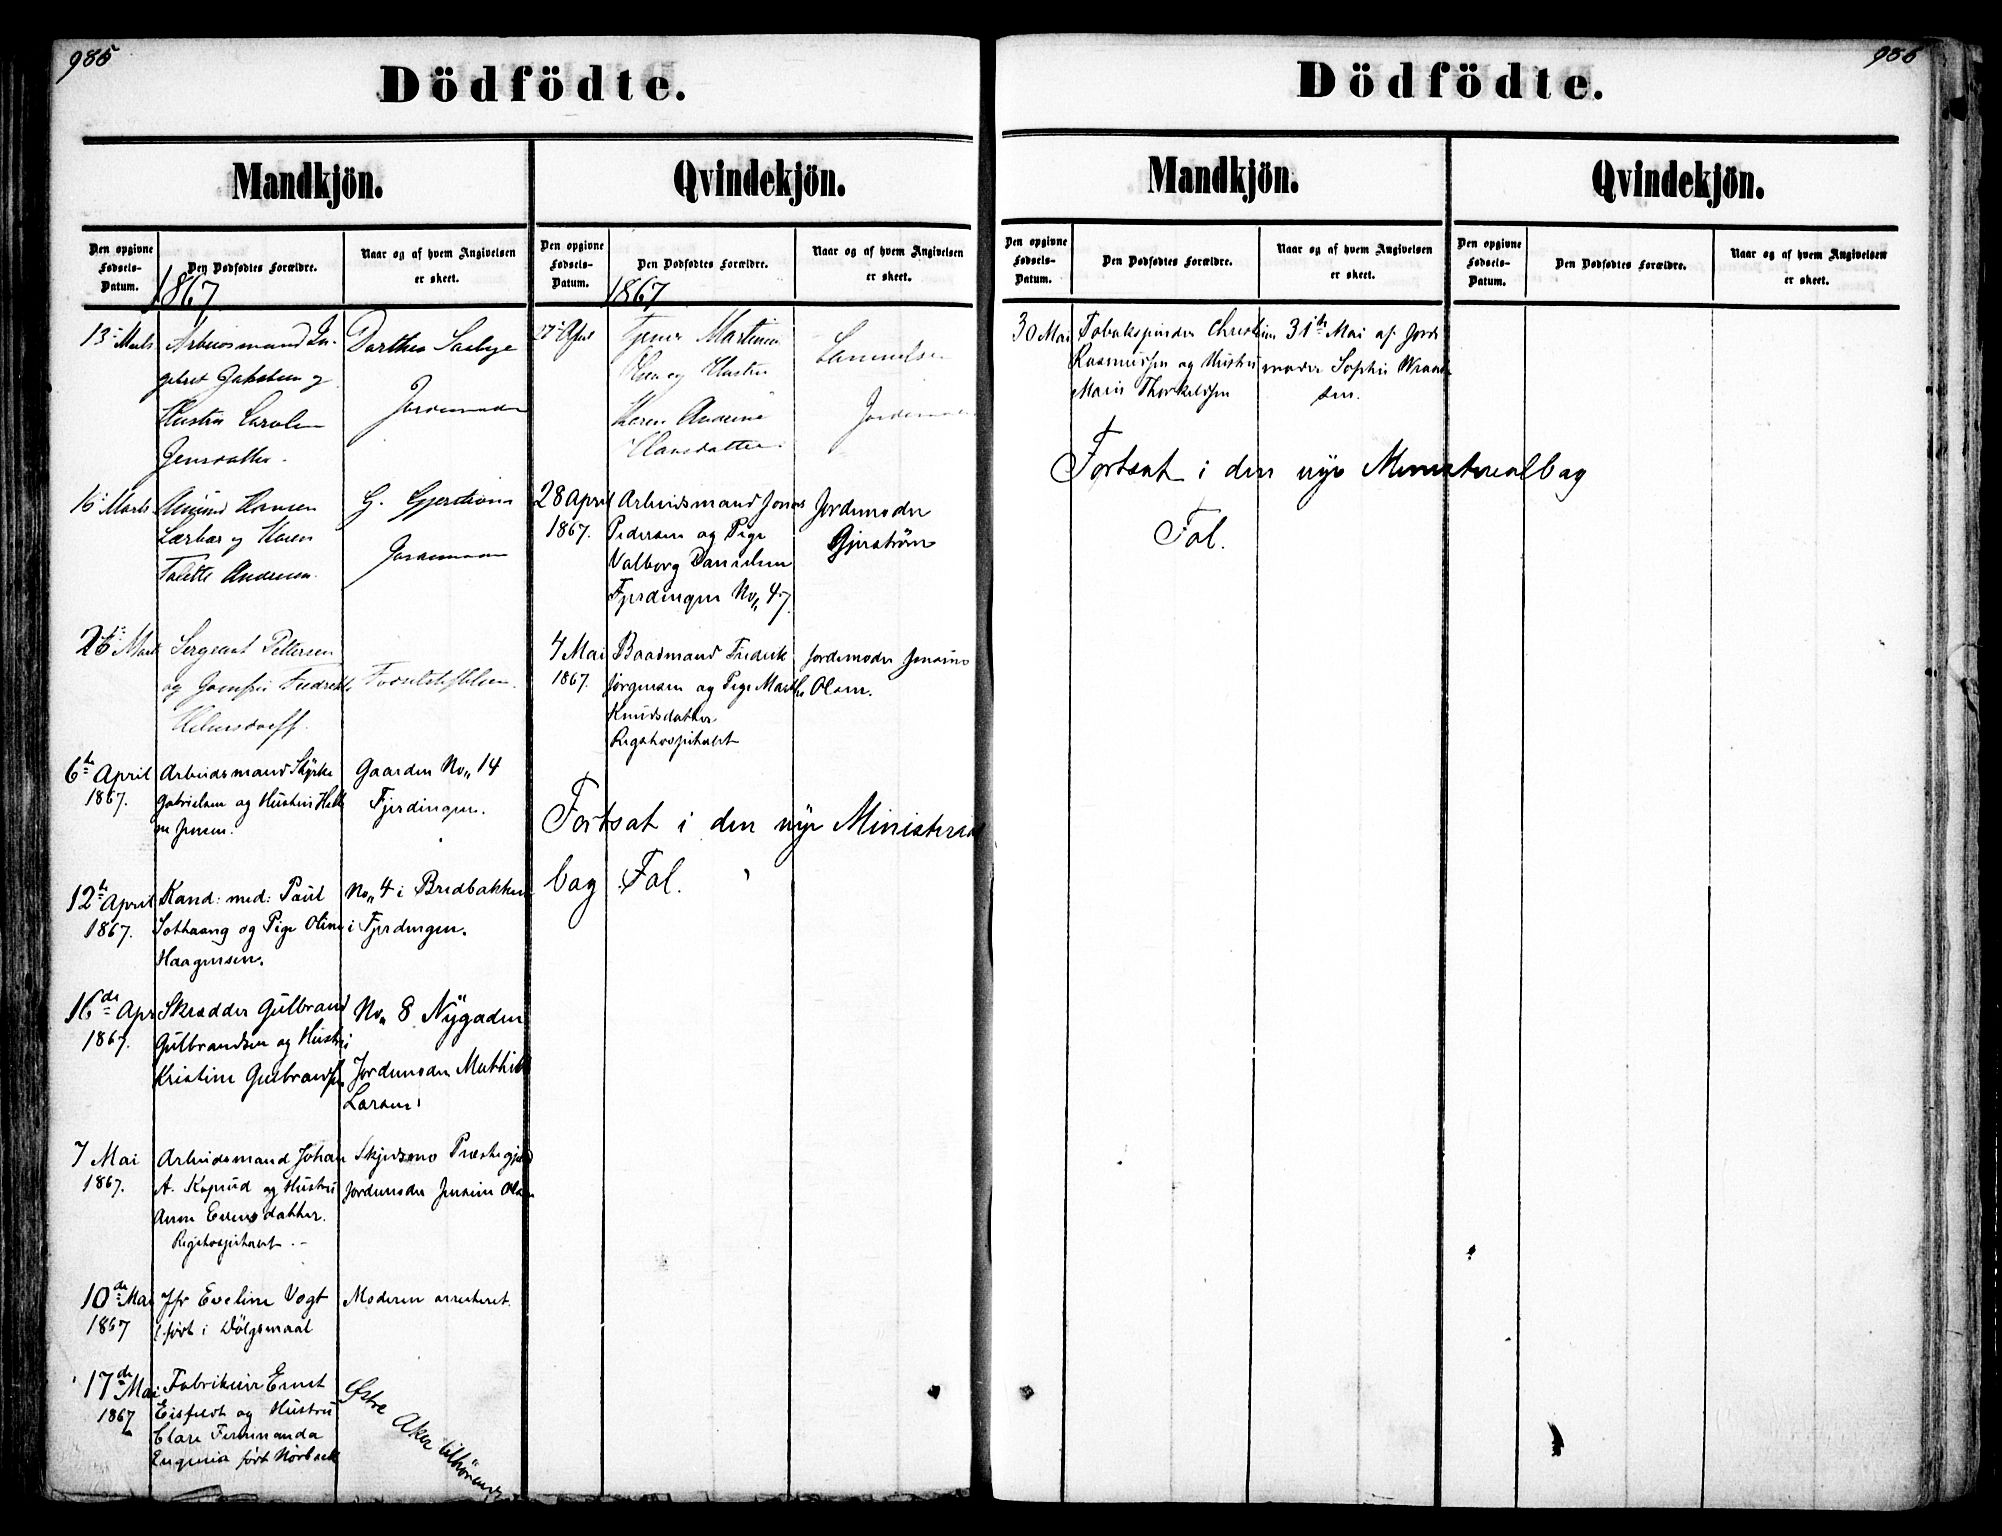 985
Dödfödte.
Mandkjön.
Den opgivne Fødsels-Datum.
Den Dødfødtes Forældre.
Naar og af hvem Angivelsen er skeet.
1867
13 Marts
Arbeidsmand In-
gebret Jakobsen og
Hustru Caroline
Jensdatter.
Dorthea Saxbye
Jordemoder
16 Marts
Amund Hansen
og Karen
Talette Andersen.
G. Gjerstrøm
Jordemoder
26 Marts
Sergeant Pettersen
og Jomfru Fredrikke
Fødselsstiftelsen.
6te April
1867.
Arbeidsmand
Gabrielsen og Hustru Hele
ne Jensen.
Gaarden No. 14
Fjerdingen.
12te April
1867.
Kand: med: Paul
og Pige Oline
Haagensen.
No. 4 i Bredbakken
i Fjerdingen.
16de Apr
1867.
Skrædder Gulbrand
Gulbrandsen og Hustru
Kristine Gulbrandsen
No. 8 Nygaden
Jordemoder Mathilde
Larsen.
7 Mai
1867.
Arbeidsmand Johan
A. Koprud og Hustru
Anne Evensdatter.
Rigshospitalet.
Skjedsmo Præstegjeld
Jordemoder Jensine Olsen
10de Mai
1867
Jfr Eveline Vogt
født i Dölgsmaal
Moderen arresteret.
17de Mai
1867
Fabrikeier Ernst
Eisfeldt og Hustru
Clare Ferninanda
Eugenia født Nörbeck
Østre Aker tilhörende
Qvindekjön.
Den opgivne Fødsels-Datum.
Den Dødfødtes Forældre.
Naar og af hvem Angivelsen er skeet.
1867
17 April
Tjener Martinius
Olsen og Hustru
Karen Andrine
Hansdatter.
Samuelsen
Jordemoder
28 April
1867.
Arbeidsmand Jonas
Pedersen og Pige
Valborg Danielsen
Fjerdingen No. 47.
Jordemoder
Gjerström
4 Mai
1867.
Baadmand Frederik
Jørgensen og Pige Marthe
Knudsdatter
Rigshospitalet
Jordemoder Jensine
Olsen.
Fortsat i den nye Ministerial
bog Fol.
986
Dödfödte.
Mandkjön.
Den opgivne Fødsels-Datum.
Den Dødfødtes Forældre.
Naar og af hvem Angivelsen er skeet.
30 Mai
Tobakspinder Christian
Rasmussen og Hustru
Marie Thorkeldsen
31te Mai af Jorde
moder Sophie
Fortsat i den nye Ministerialbog
Fol.
Qvindekjön.
Den opgivne Fødsels-Datum.
Den Dødfødtes Forældre.
Naar og af hvem Angivelsen er skeet.